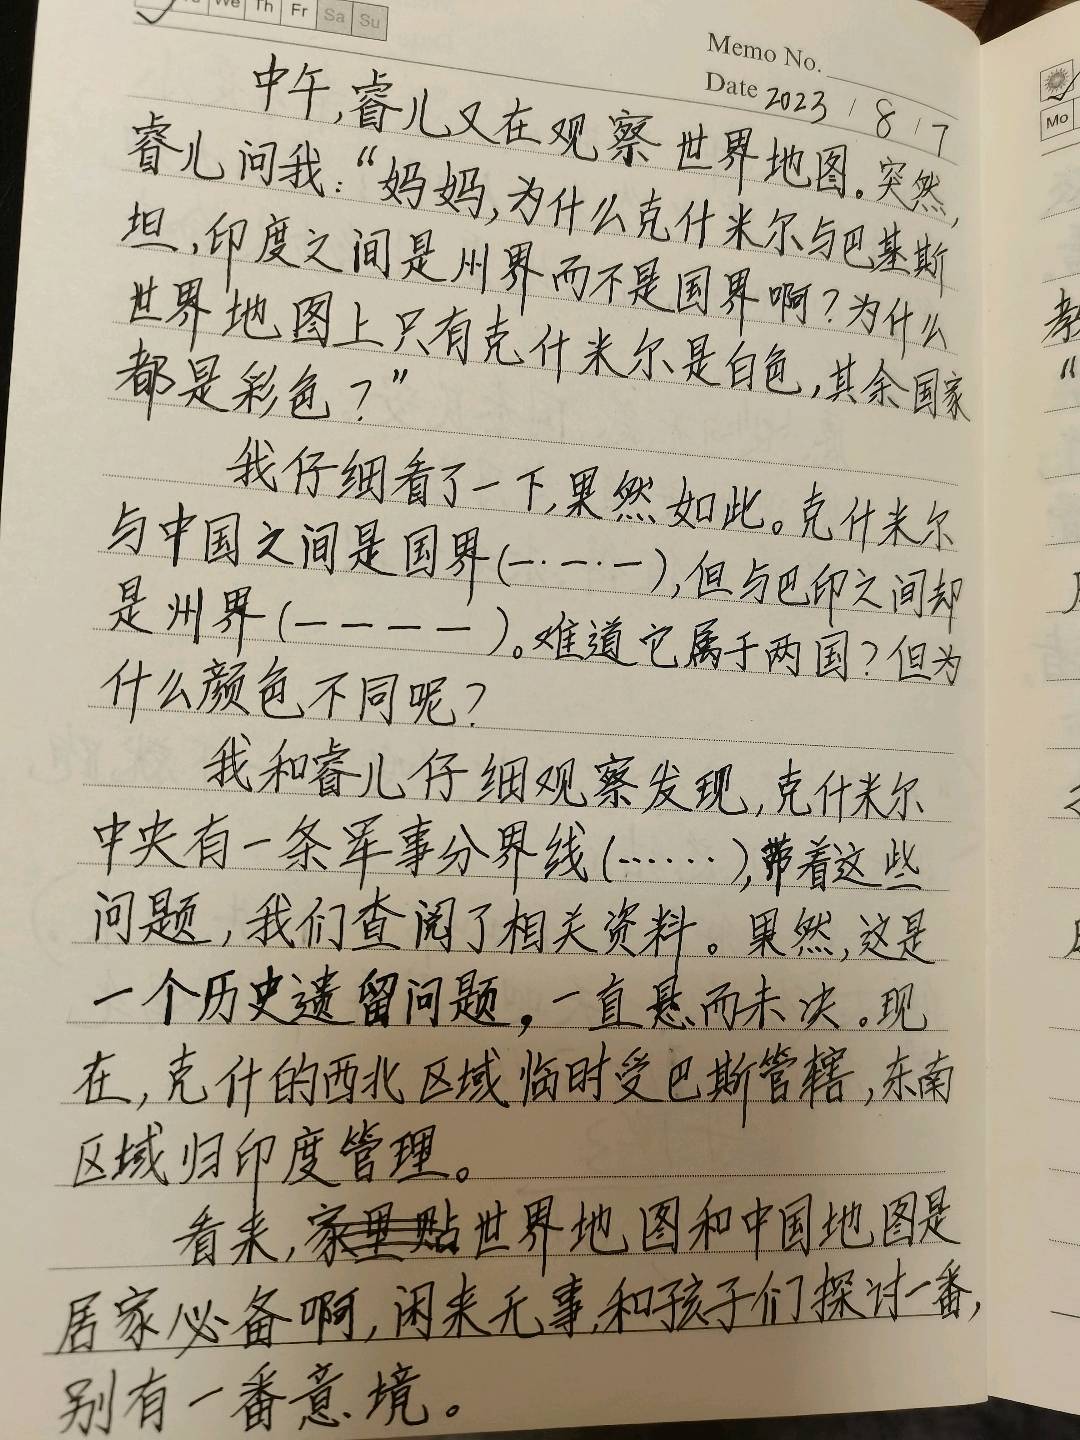 We Th Fr Sa Su
Memo No.
Date 2023 / 8 / 7
中午,睿儿又在观察世界地图。突然,
睿儿问我:“妈妈,为什么克什米尔与巴基斯
坦,印度之间是州界而不是国界啊?为什么
世界地图上只有克什米尔是白色,其余国家
都是彩色?”
我仔细看了一下,果然如此。克什米尔
与中国之间是国界(—·—·—),但与巴印之间却
是州界(————)。难道它属于两国?但为
什么颜色不同呢?
我和睿儿仔细观察发现,克什米尔
中央有一条军事分界线(······),带着这些
问题,我们查阅了相关资料。果然,这是
一个历史遗留问题,一直悬而未决。现
在,克什的西北区域临时受巴斯管辖,东南
区域归印度管理。
看来,家里贴世界地图和中国地图是
居家必备啊,闲来无事,和孩子们探讨一番,
别有一番意境。
Mo
教
“